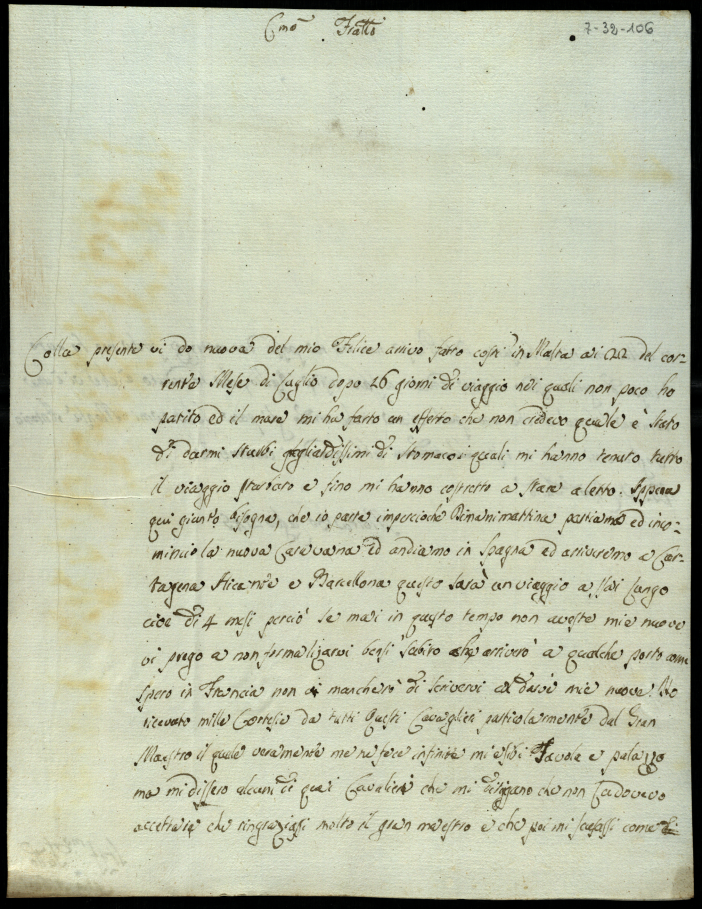 Cmo Fratto
7-32-106
Colla presente vi do nuova del mio Felice arrivo fatto costì in Malta ai 22 del cor-
rente Mese di Luglio dopo 26 giorni di viaggio nei quali non poco ho
patito ed il mare mi ha fatto un effetto che non credevo quale è stato
di darmi sturbi gagliardissimi di stomaco i quali mi hanno tenuto tutto
il viaggio e fino mi hanno costretto a stare a letto. Appena
qui giunto bisogna, che io parta impercioche mattina partiamo ed inco-
mincio la nuova Caravana ed andiamo in Spagna ed arriveremo a Car-
tagena Alicante e Barcellona questo sarà un viaggio assai Lungo
cioè di 4 mesi perciò se mai in questo tempo non aveste mie nuove
vi prego a non formalizarvi subito che arriverò a qualche porto come
spero in Francia non mancherò di scrivervi e darvi mie nuove. Ho
ricevuto mille Cortesie da tutti questi Cavaglieri particolarmente dal Gran
Maestro il quale veramente me ne fece infinite Tavola e palazzo
ma mi dissero alcuni di quei Cavalieri che mi che non La dovevo
accettare che ringraziassi molto il gran maestro e che poi mi scusassi come